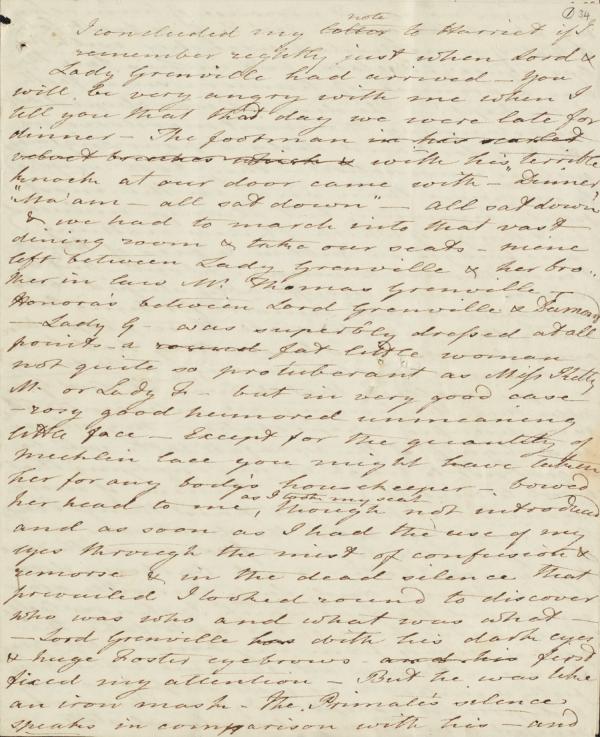 34
note
I concluded my letter to Harriet if I
remember rightly just when Lord &
Lady Grenville had arrived – You
will be very angry with me when I
tell you that that day we were late for
dinner – The footman in his scarlet
velvet breeches which & with his "terrible
knock at our door came with – "Dinner
"Ma'am – all sat down" – all sat down"
& we had to march into that vast
dining room & take our seats – mine
left between Lady Grenville & her bro-
ther in law Mr. Thomas Grenville –
Honora's between Lord Grenville &
– Lady G – was superbly dressed at all
points – a round fat little woman
not quite so protuberant as Miss Kelly
M. or Lady F – but in very good case
– rosy good humored unmeaning
little face – Except for the quantity of
mechlin lace you might have taken
her for any body's housekeeper – bowed
as I took my seat
her head to me, though not introduced
and as soon as I had the use of my
eyes through the mist of confusion &
remorse & in the dead silence that
prevailed I looked round to discover
who was who and what was what –
– Lord Grenville has with his dark eyes
& huge Foster eyebrows and his first
fixed my attention – But he was like
an iron mask – the Primate's silence
speaks in comparison with his – and